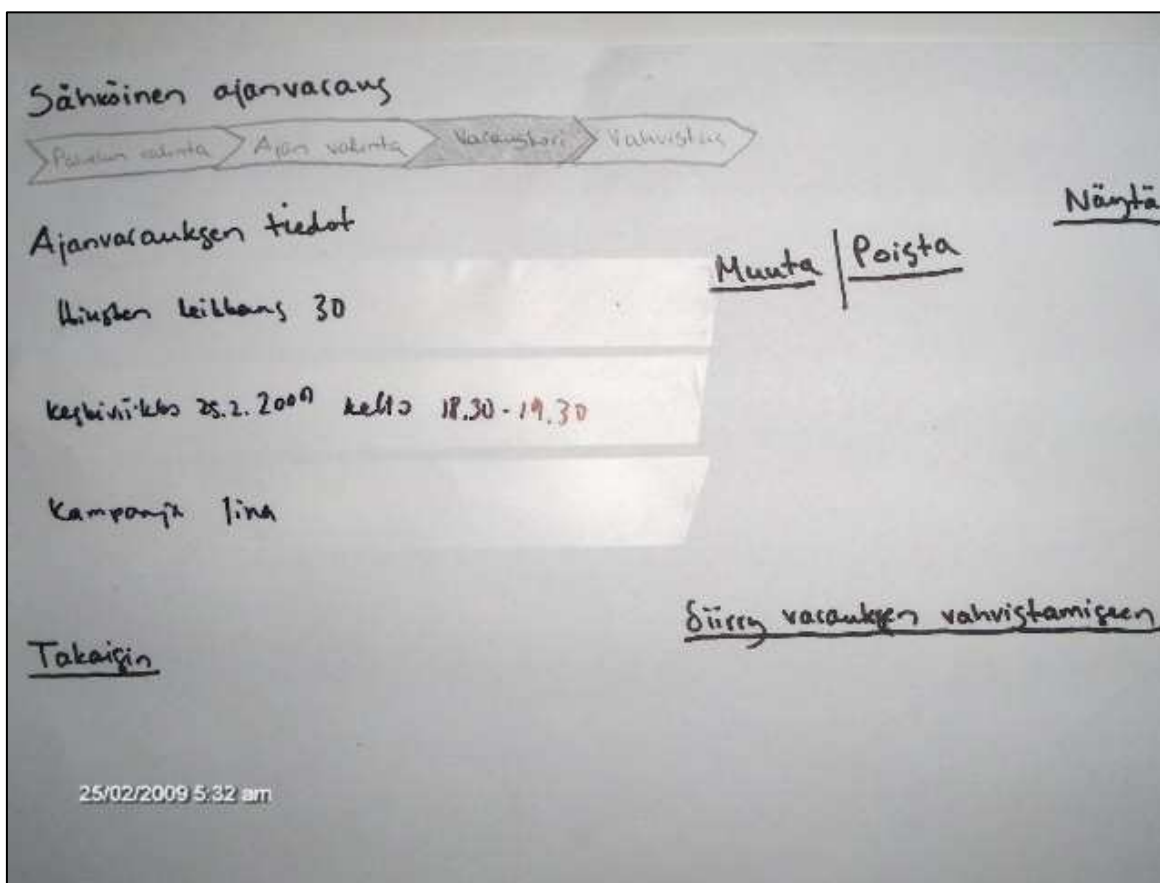 Sähköinen ajanvaraus
Palvelun valinta Ajan valinta Varauskori Vahvistus
Näytä
Ajanvarauksen tiedot
Muuta Poista
Hiusten leikkaus 30
keskiviikko 25.2.2009 kello 18.30-19.30
Kampaaja Iina
Siirry varauksen vahvistamiseen
Takaisin
25/02/2009 5:32 am